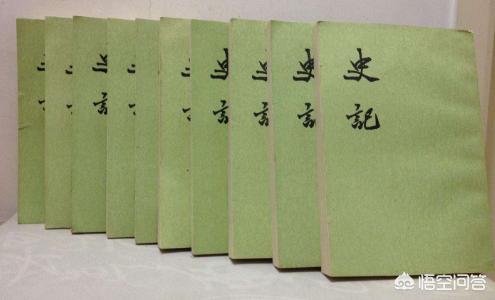 史記
悟空问答